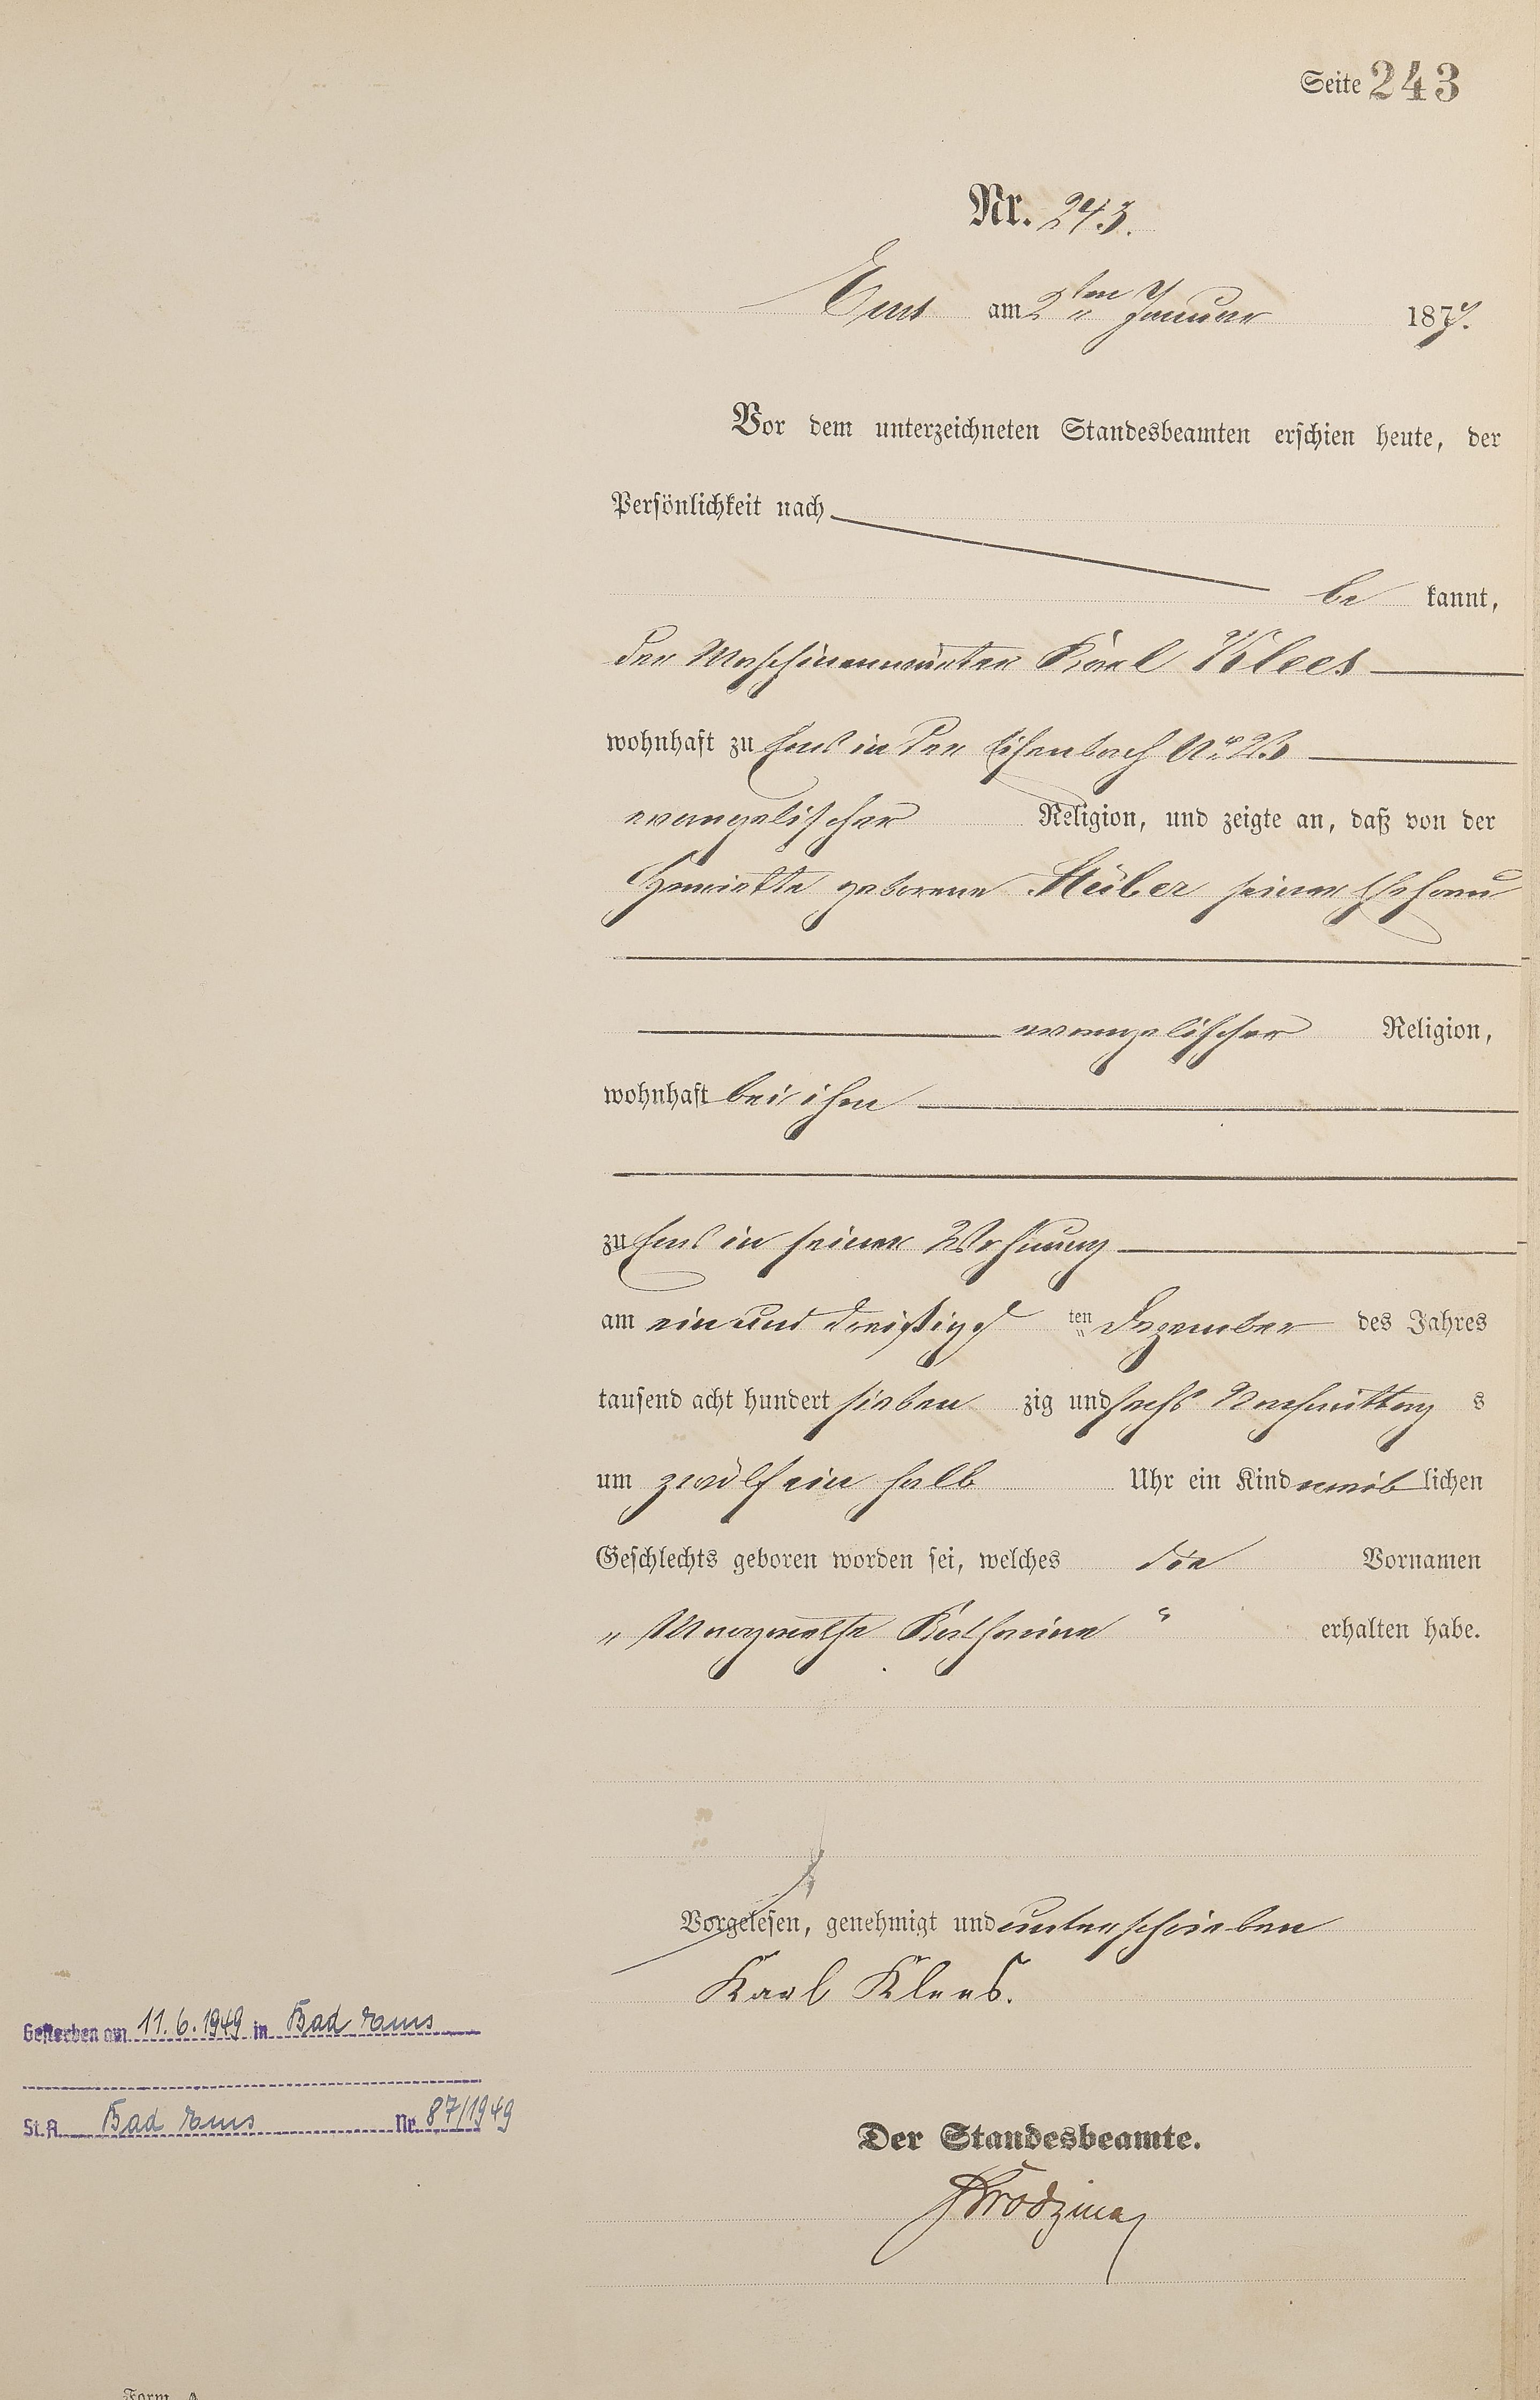 Seite 243
Nr. 243.
Ems am 2ten Januar 1877.
Vor dem unterzeichneten Standesbeamten erschien heute, der
Persönlichkeit nach
be kannt,
der Maschinenwärter Karl Klees
wohnhaft zu Ems in der Eisenbach No 23
evangelischer Religion, und zeigte an, daß von der
Henriette geborene Stüber seiner Ehefrau
evangelischer Religion,
wohnhaft bei ihm
zu Ems in seiner Wohnung
am ein und dreißigs ten Dezember des Jahres
tausend acht hundert sieben zig und sechs Nachmittag s
um zwölf ein halb Uhr ein Kind weib lichen
Geschlechts geboren worden sei, welches die Vornamen
„ Margarethe Katharina “ erhalten habe.
Vorgelesen, genehmigt und unterschrieben
Karl Klees.
Gestorben am 11.6.1949 in Bad Ems
St.A. Bad Ems Nr. 87/1949
Der Standesbeamte.
Form. A